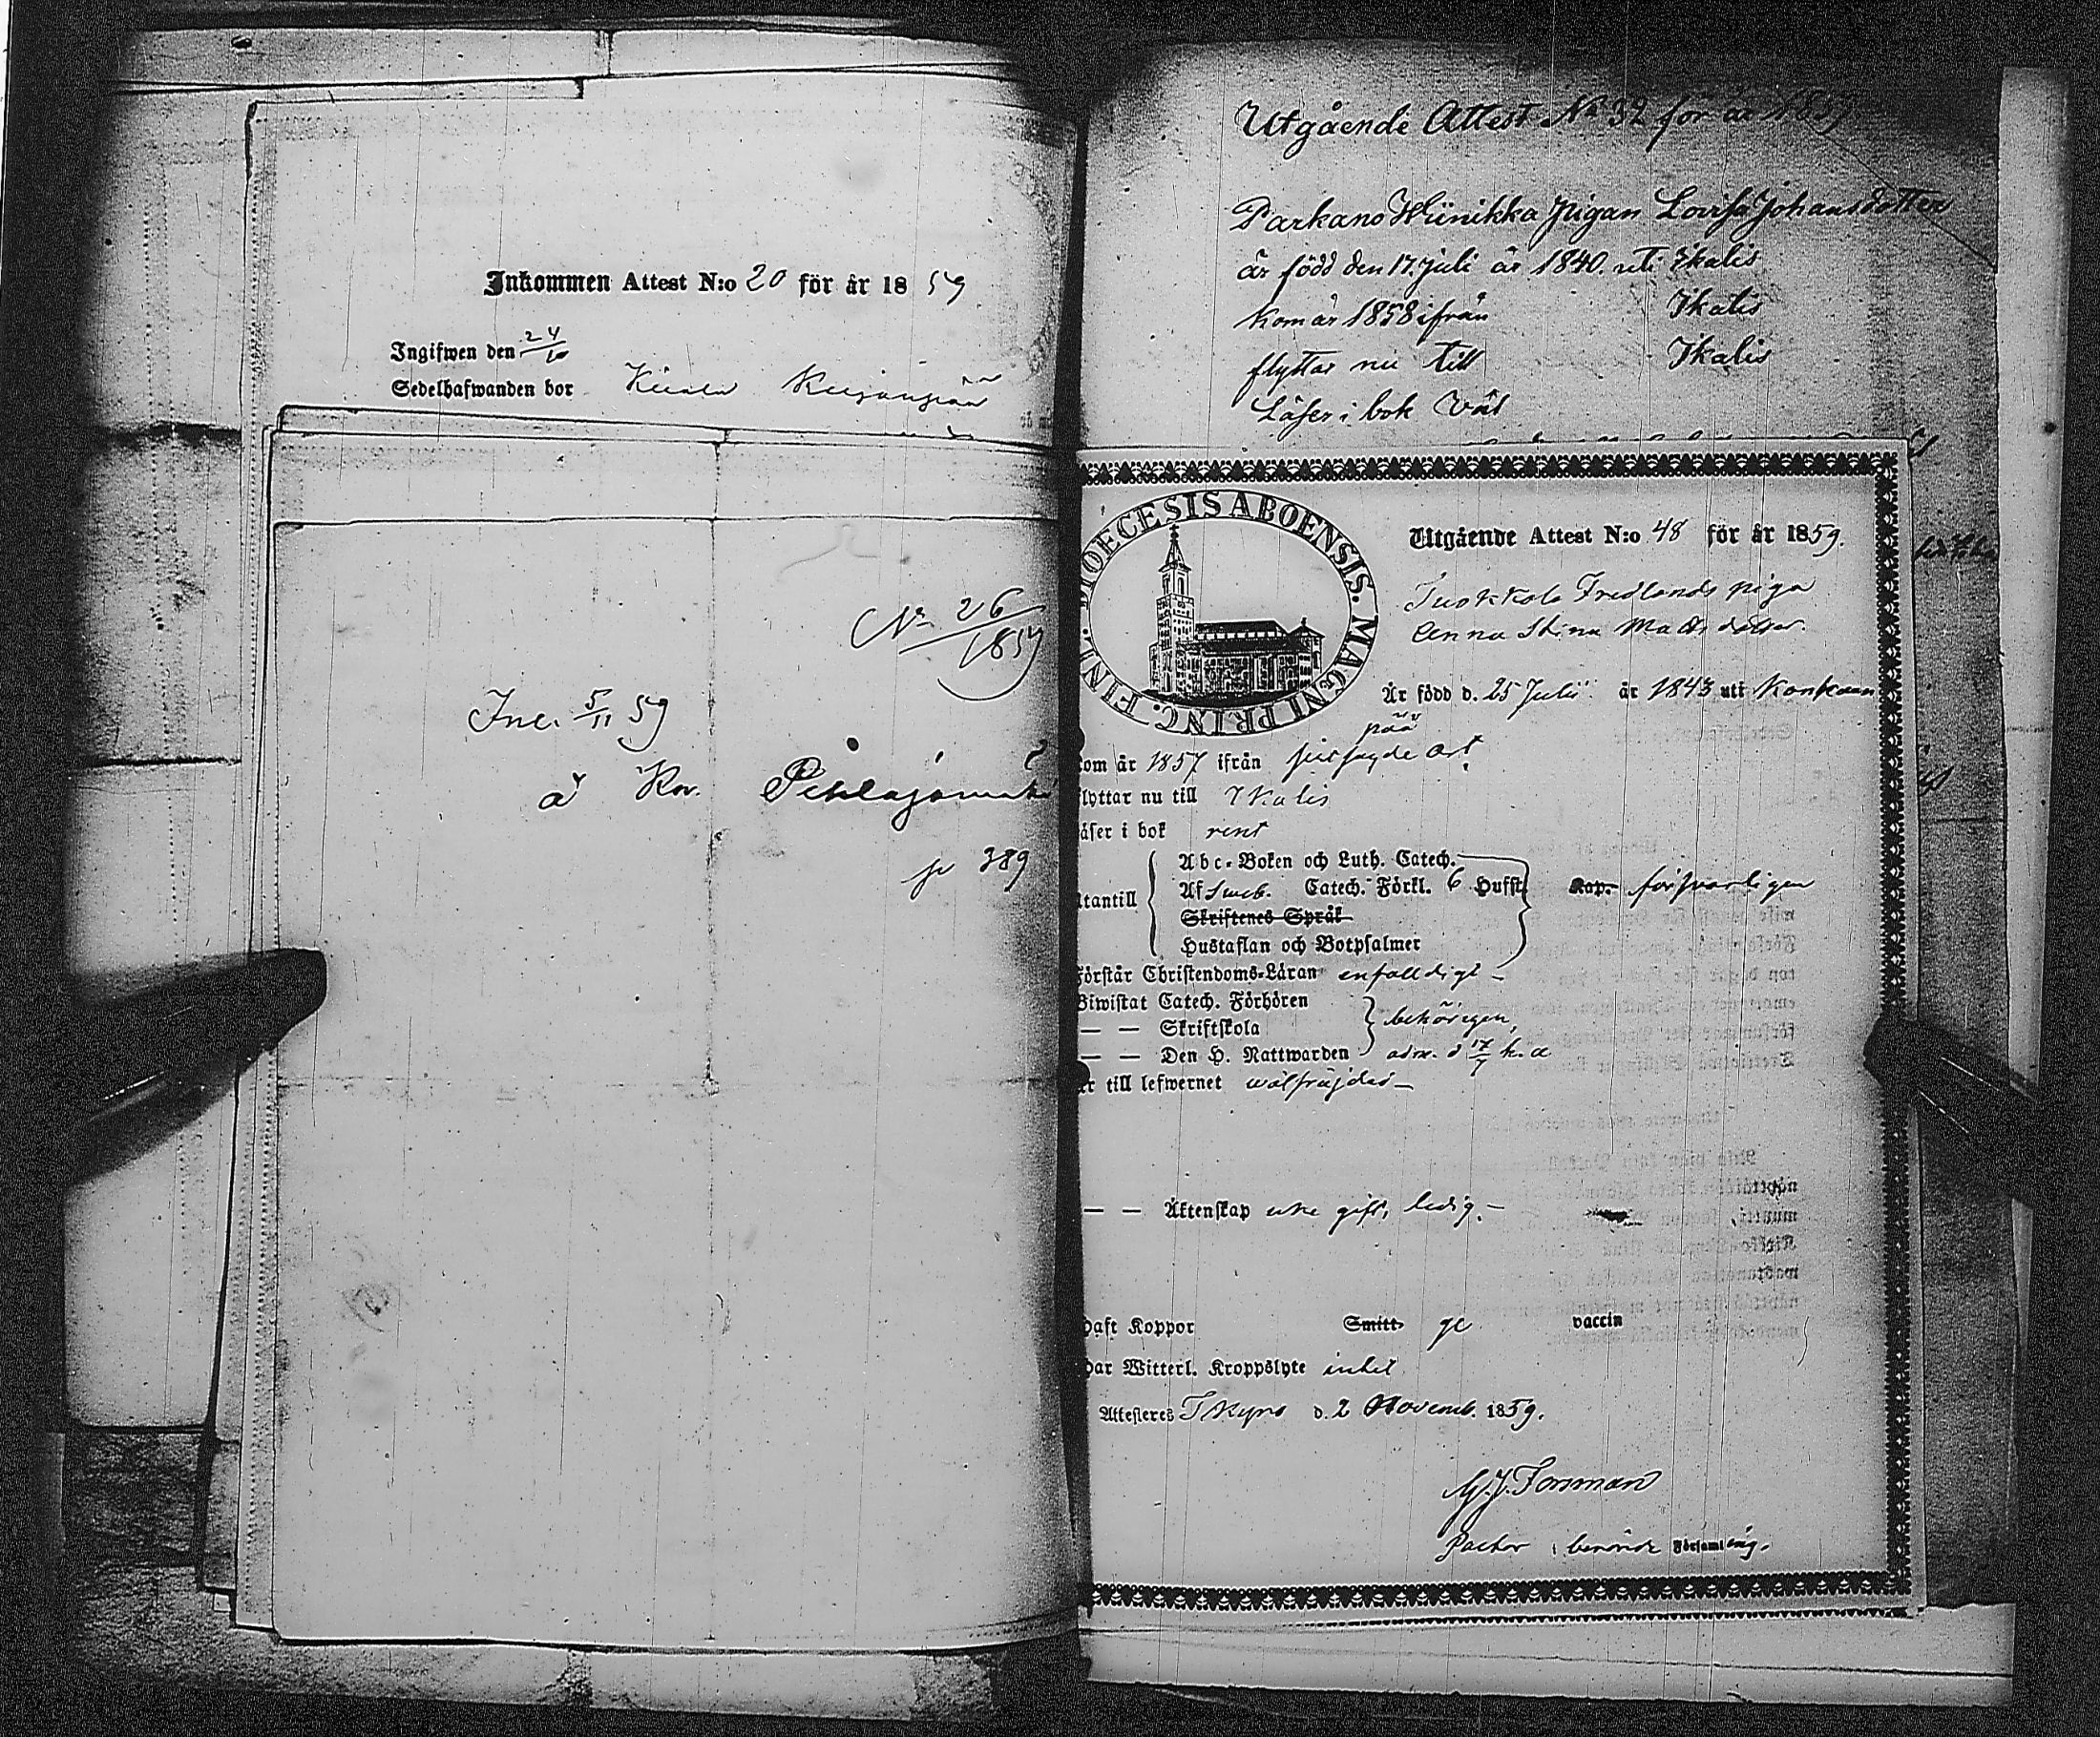 Inkommen Attest N:o 20 för år 1859
Ingifwen den 24/10
Sedelhafwanden bor
No 26/1859
Ink. 5/11 59
å Kv.
p 389
Utgående Attest No 32 för år 1859
Parkano Hiinikka Pigan Lovisa Johansdotter
är född den 17. Juli år 1840. uti Ikalis
kom år 1858 ifrån Ikalis
flyttar nu till Ikalis
Läser i bok väl
DIOECESIS ABOENSIS. MAGNI PRINC. FINL.
Utgående Attest N:o 48 för år 1859.
Fredlands piga
Anna Stina Matts dotter.
Är född d. 25 Julii år 1843 uti Konkaan
pää
om år 1857 ifrån sist sagde ort.
lyttar nu till Ikalis
äser i bok rent
tantill
Abc-Boken och Luth. Catech.
Af Sveb. Catech. Förkl. 6 Hufst. Kap. försvarligen
Skriftenes Språk
Hustaflan och Botpsalmer
Förstår Christendoms-Läran enfaldigt –
Biwistat Catech. Förhören
— — Skriftskola behörigen,
— — Den H. Nattwarden adm. d 17/7 h. a
r till lefwernet wälfräjdad –
— — Äktenskap icke gift, ledig. –
haft Koppor Smitt- ge vaccin
har Witterl. Kroppslyte intet
Attesteras T Kyro d. 2 Novemb. 1859.
G. J. Forsman
Pastor i berörde Församling.